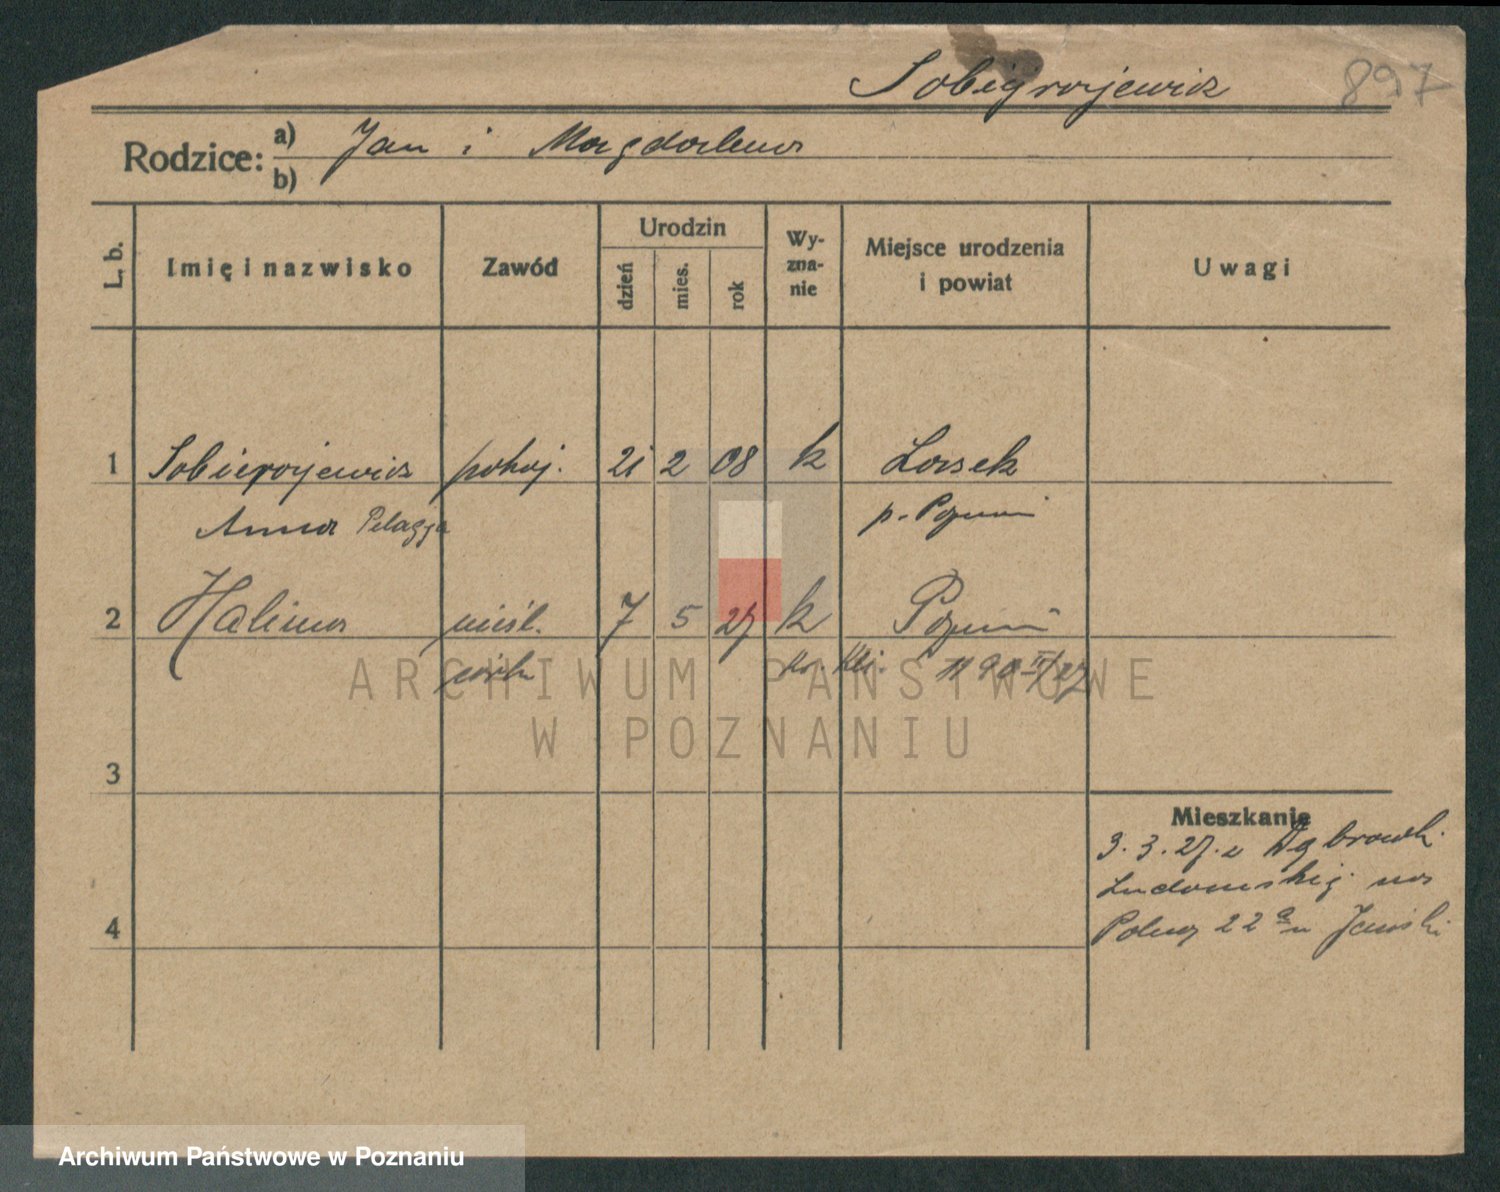 Sobierajewicz
897
Rodzice:
a) Jan i Magdalena
b)
L. b.
Imię i nazwisko
Zawód
Urodzin
dzień
mies.
rok
Wy-
zna-
nie
Miejsce urodzenia
i powiat
Uwagi
1 Sobierajewicz pokoj. 21 2 08 k Lasek
Anna Pelagja p. Poznań
2 Halina nieśl. 7 5 27 k Poznań
3
Mieszkanie
3.3.27. u Dąbrowsk.
na
4
Polna 22 u
ARCHIWUM PAŃSTWOWE
W POZNANIU
Archiwum Państwowe w Poznaniu